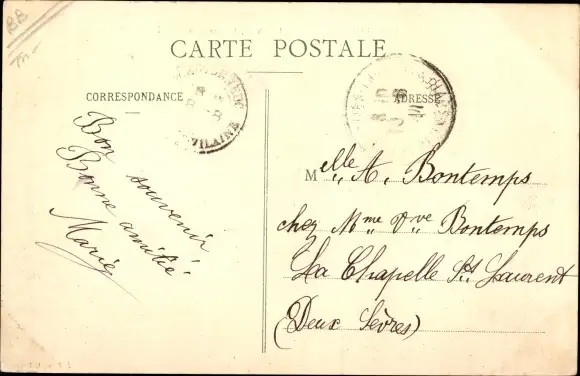 BB
CARTE POSTALE
CORRESPONDANCE
ADRESSE
VILAINE
Bon souvenir
Bonne amitié
Marie
Melle A. Bontemps
chez Mme Vve Bontemps
La Chapelle St Laurent
(Deux Sèvres)